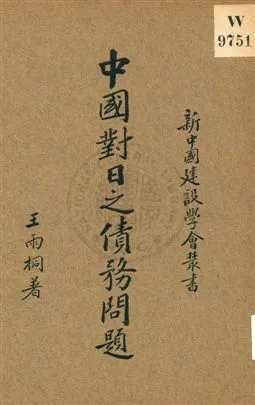 W
9751
新中國建設學會叢書
中國對日之債務問題
王雨桐著